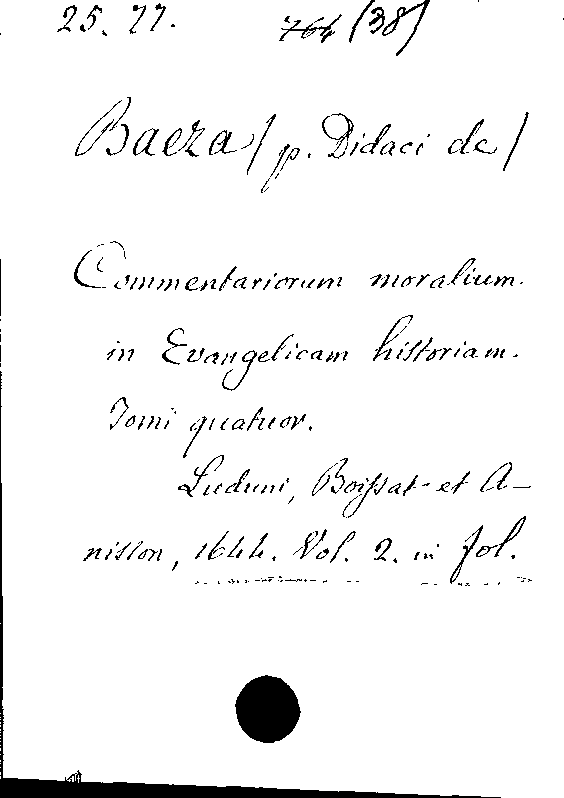 25. 77. 764 (38)
Baeza / p. Didaci de /
Commentariorum moralium.
in Evangelicam historiam.
Tomi quatuor.
Luduni, Boissat et A-
nisson, 1644. Vol. 2. in fol.